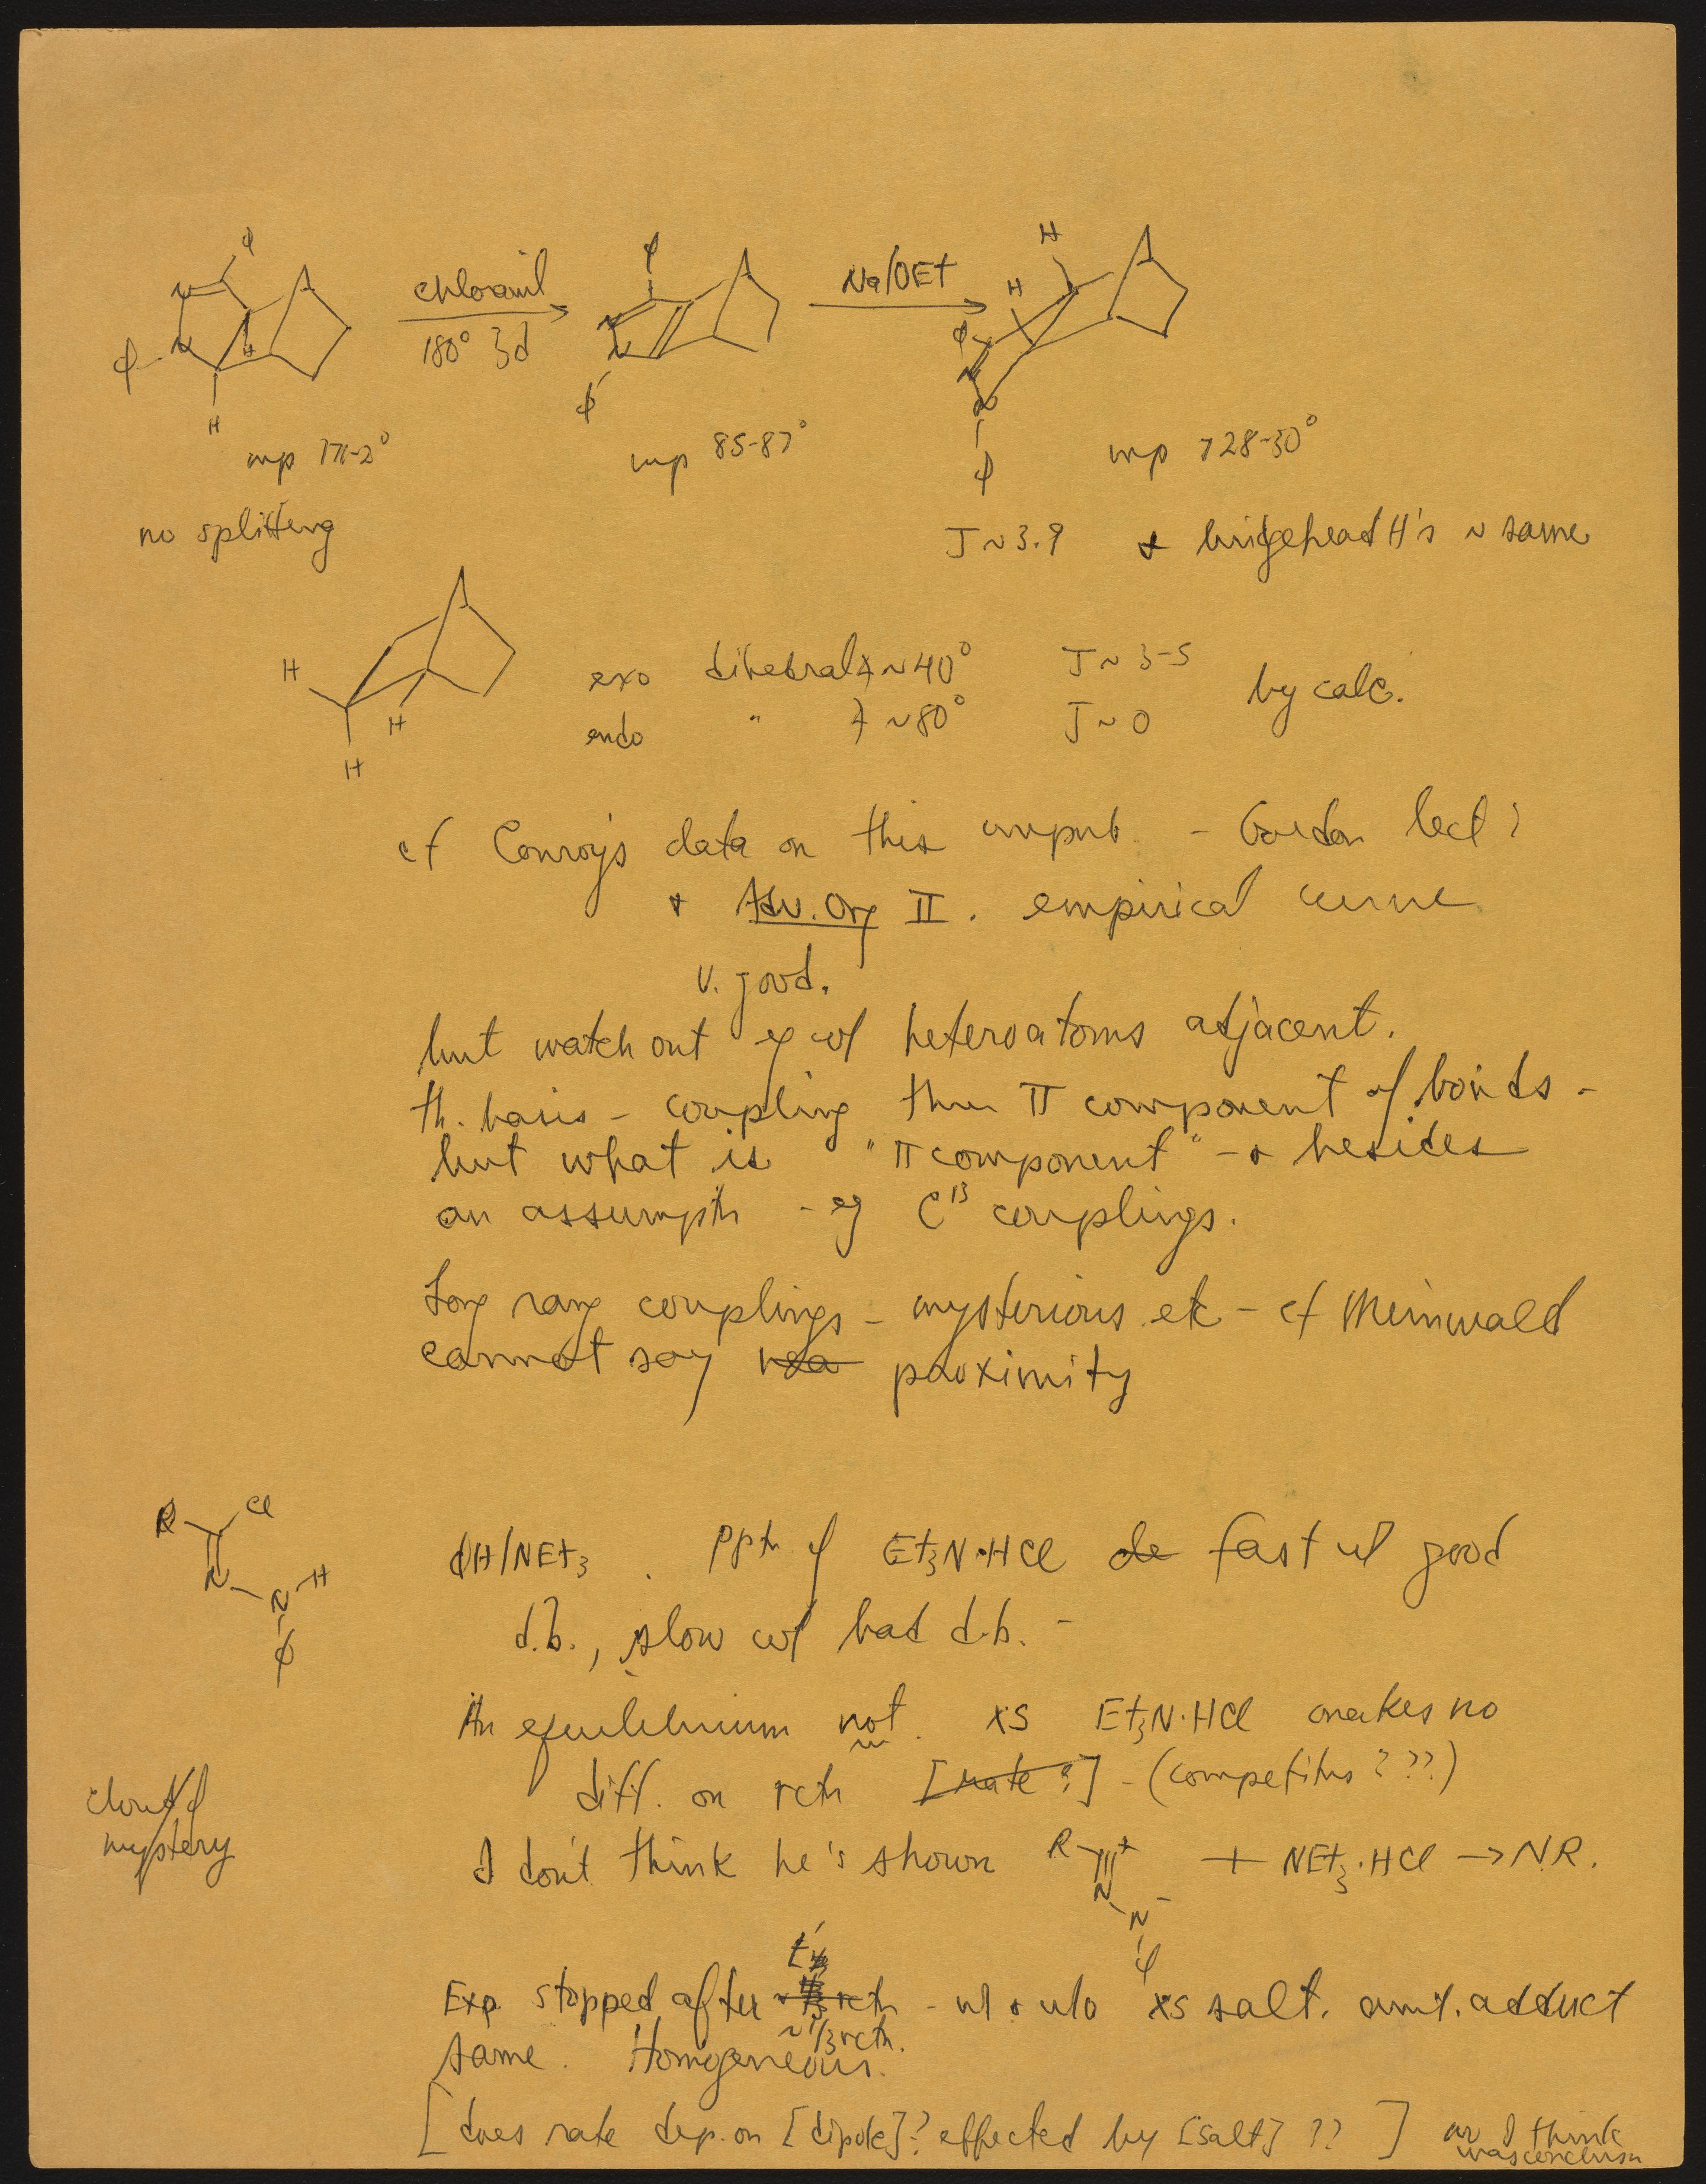 chloranil
180° 3d
Na/OEt
mp 171-2°
mp 85-87°
mp 128-30°
no splitting
J ~ 3.9 + bridgehead H's ~ same
exo dihedral ∡ ~40° J ~ 3-5
by calc.
endo " ∡ ~80° J ~ 0
cf Conroy's data on this unpub. - Gordon lect?
+ Adv. Org II. empirical curve
v. good.
but watch out eg w/ heteroatoms adjacent.
th. basis - coupling thru π component of bonds -
but what is "π component" - + besides
an assumptn - eg C13 couplings.
Long rang couplings - mysterious etc - cf Meinwald
cannot say proximity
R Cl
N N H
φ
φH/NEt3 . pptn of Et3N·HCl fast w/ good
d.b., slow w/ bad d.b. -
An equilibrium not. xs Et3N·HCl makes no
diff. on rctn [rate?] - (competitns ???)
cloud of
mystery
I don't think he's shown R + + NEt3·HCl → NR.
N N -
φ
Exp stopped after - w/ + w/o xs salt. amt. adduct
~1/3 rctn.
same. Homogeneous.
[does rate dep. on [dipole]? effected by [salt] ?? ] I think
was conclusn